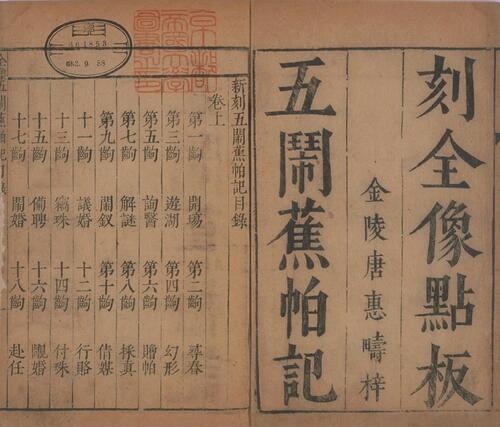 刻全像點板
金陵唐惠疇梓
五鬧蕉帕記
京都帝國大學圖書之印
新刻五鬧蕉帕記目錄
卷上
第一齣 開場 第二齣 尋春
第三齣 遊湖 第四齣 幻形
第五齣 詢醫 第六齣 贈帕
第七齣 解謎 第八齣 採真
第九齣 鬧釵 第十齣 倩媒
十一齣 議婚 十二齣 行賂
十三齣 竊珠 十四齣 付珠
十五齣 備聘 十六齣 婚
十七齣 鬧婚 十八齣 赴任
461853
五鬧蕉帕記目